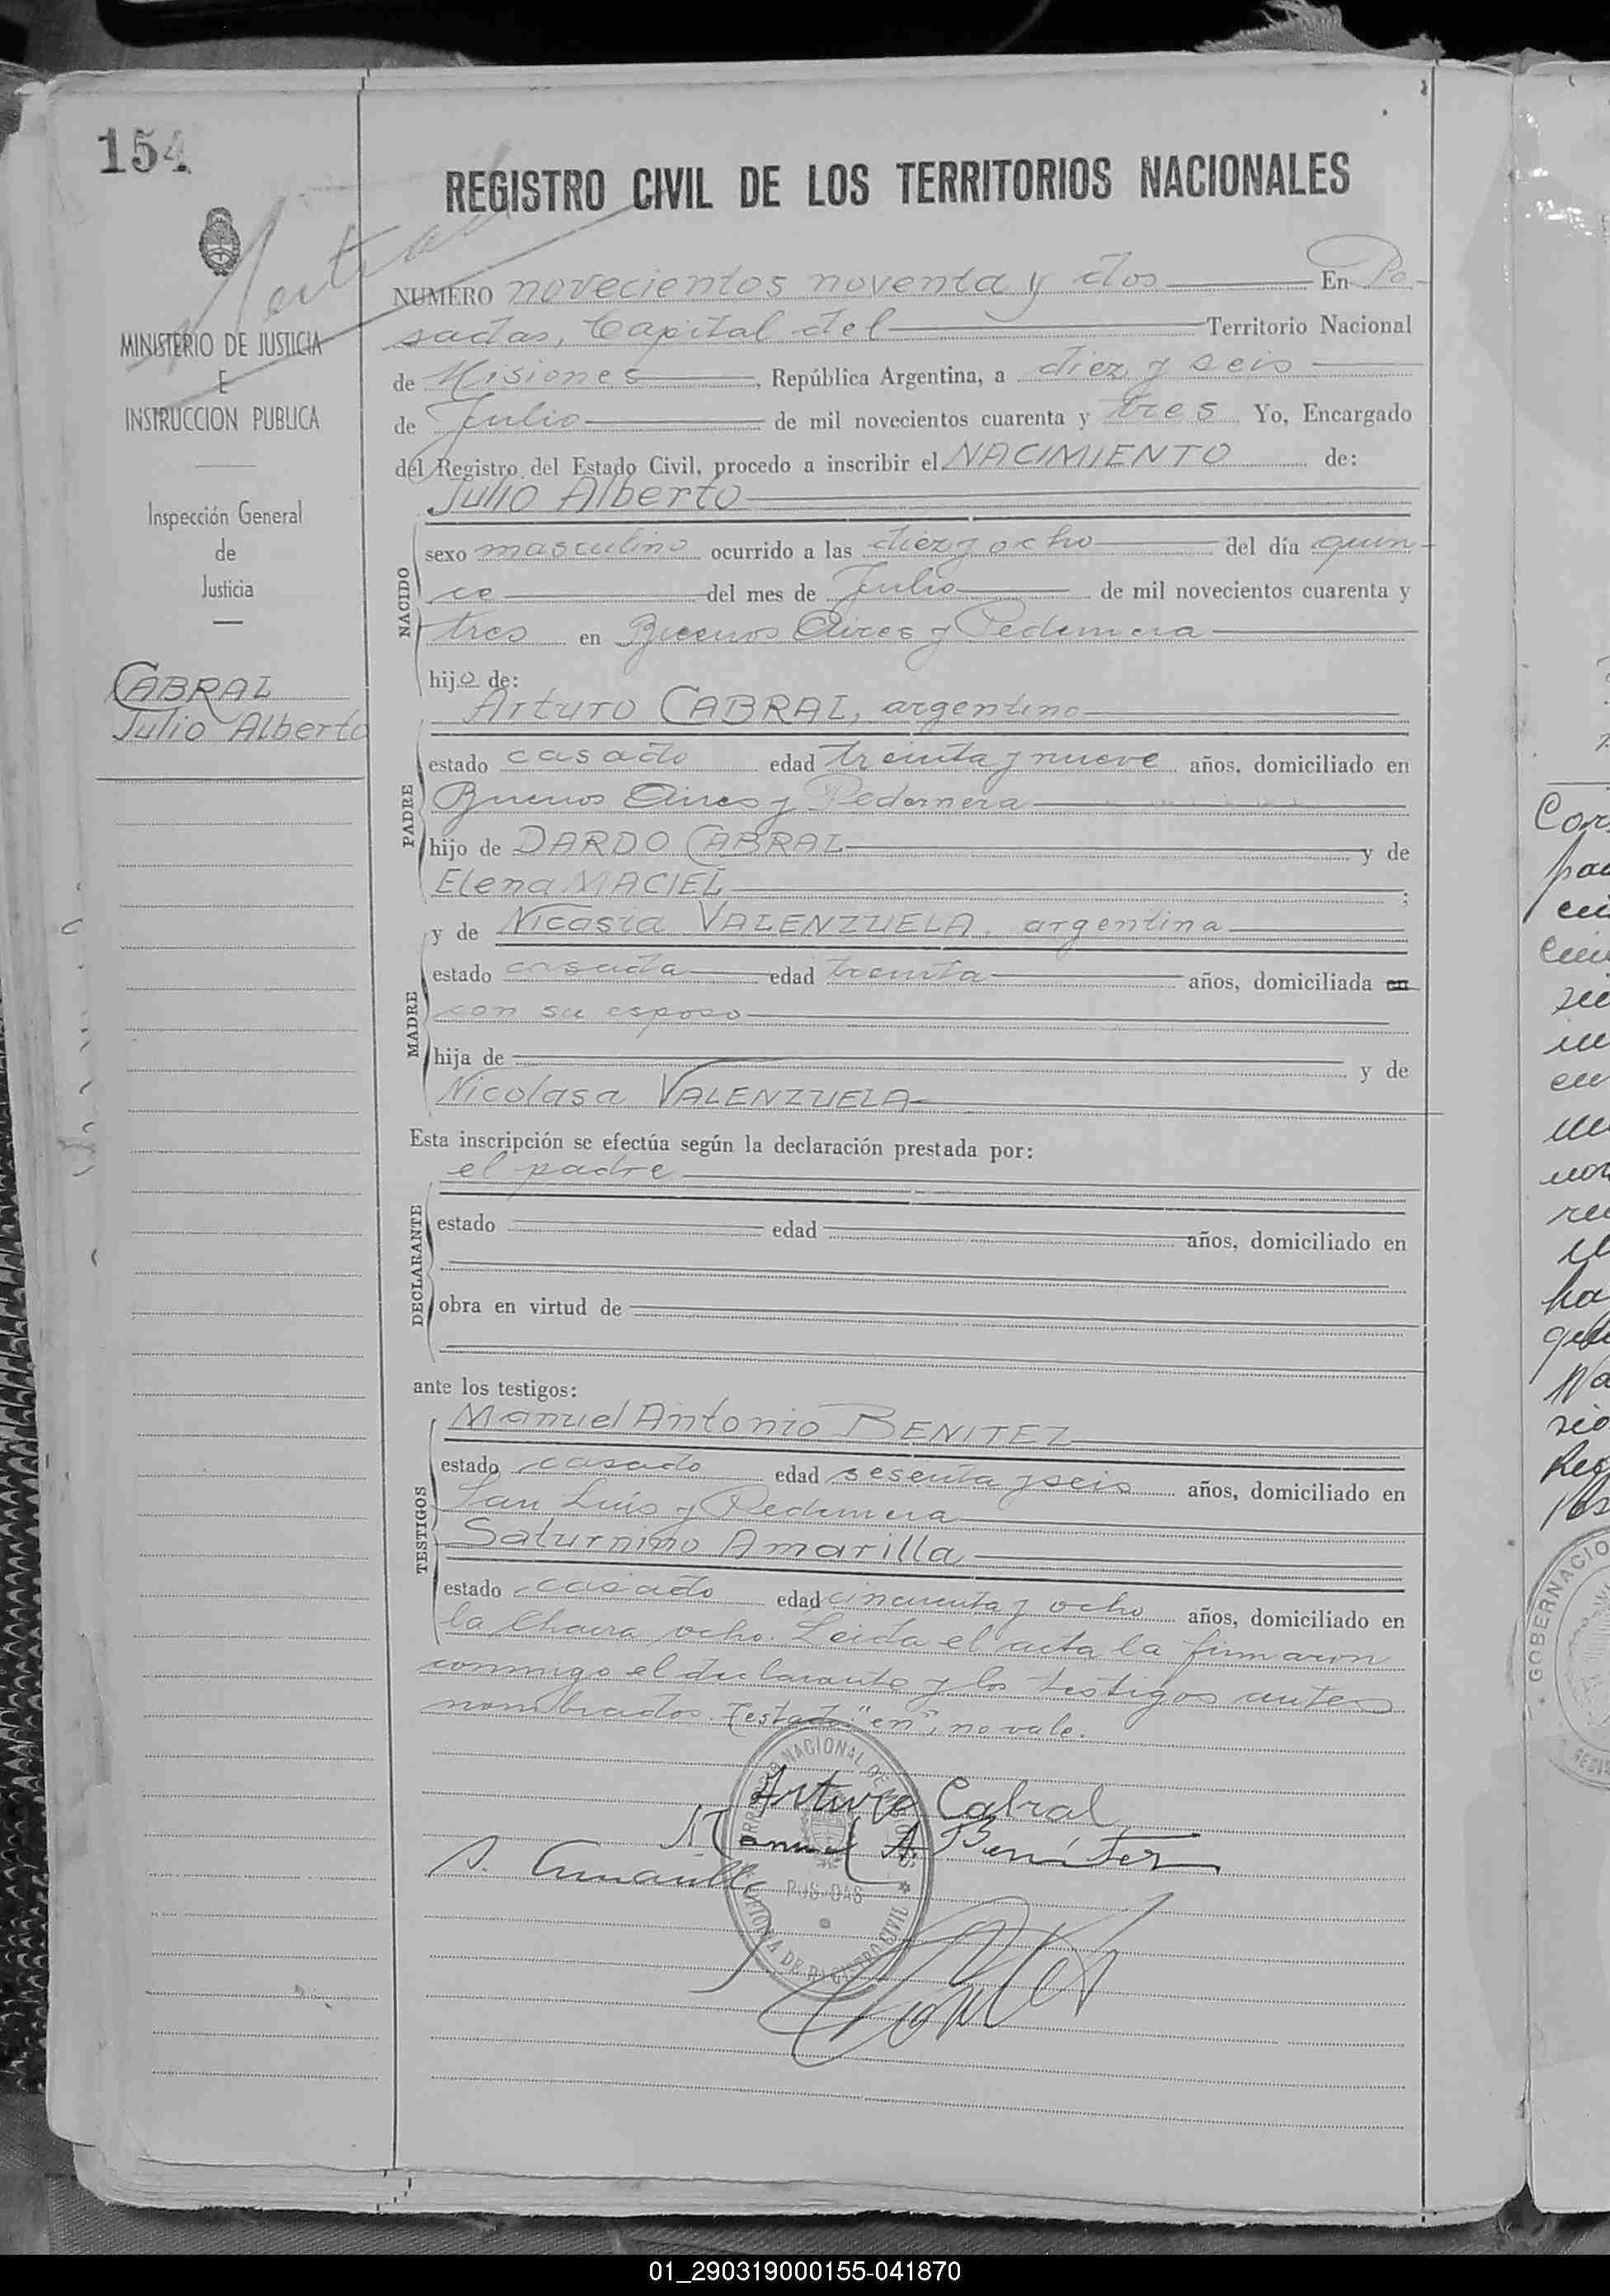 154
REGISTRO CIVIL DE LOS TERRITORIOS NACIONALES
MINISTERIO DE JUSTICIA
E
INSTRUCCION PUBLICA
Inspección General
de
Justicia
CABRAL
Julio Alberto
NUMERO novecientos noventa y dos En Po-
sadas, Capital del Territorio Nacional
de Misiones, República Argentina, a diez y seis
de Julio de mil novecientos cuarenta y tres Yo, Encargado
del Registro del Estado Civil, procedo a inscribir el NACIMIENTO de:
Julio Alberto
NACIDO
sexo masculino ocurrido a las diez y ocho del día quin-
ce del mes de Julio de mil novecientos cuarenta y
tres en Buenos Aires y Pedernera
hijo de:
Arturo CABRAL, argentino
PADRE
estado casado edad treinta y nueve años, domiciliado en
Buenos Aires y Pedernera
hijo de DARDO CABRAL y de
Elena MACIEL ;
y de Nicasia VALENZUELA, argentina
MADRE
estado casada edad treinta años, domiciliada en
con su esposo
hija de y de
Nicolasa VALENZUELA
Esta inscripción se efectúa según la declaración prestada por:
el padre
DECLARANTE
estado edad años, domiciliado en
obra en virtud de
ante los testigos:
Manuel Antonio BENITEZ
TESTIGOS
estado casado edad sesenta y seis años, domiciliado en
San Luis y Pedernera
Saturnino Amarilla
estado casado edad cincuenta y ocho años, domiciliado en
la Chacra ocho. Leida el acta la firmaron
conmigo el declarante y los testigos antes
nombrados. Testado: "en", no vale.
Arturo Cabral
Manuel A. Benitez
S. Amarilla
POSADAS
GOBERNACIO
01_290319000155-041870